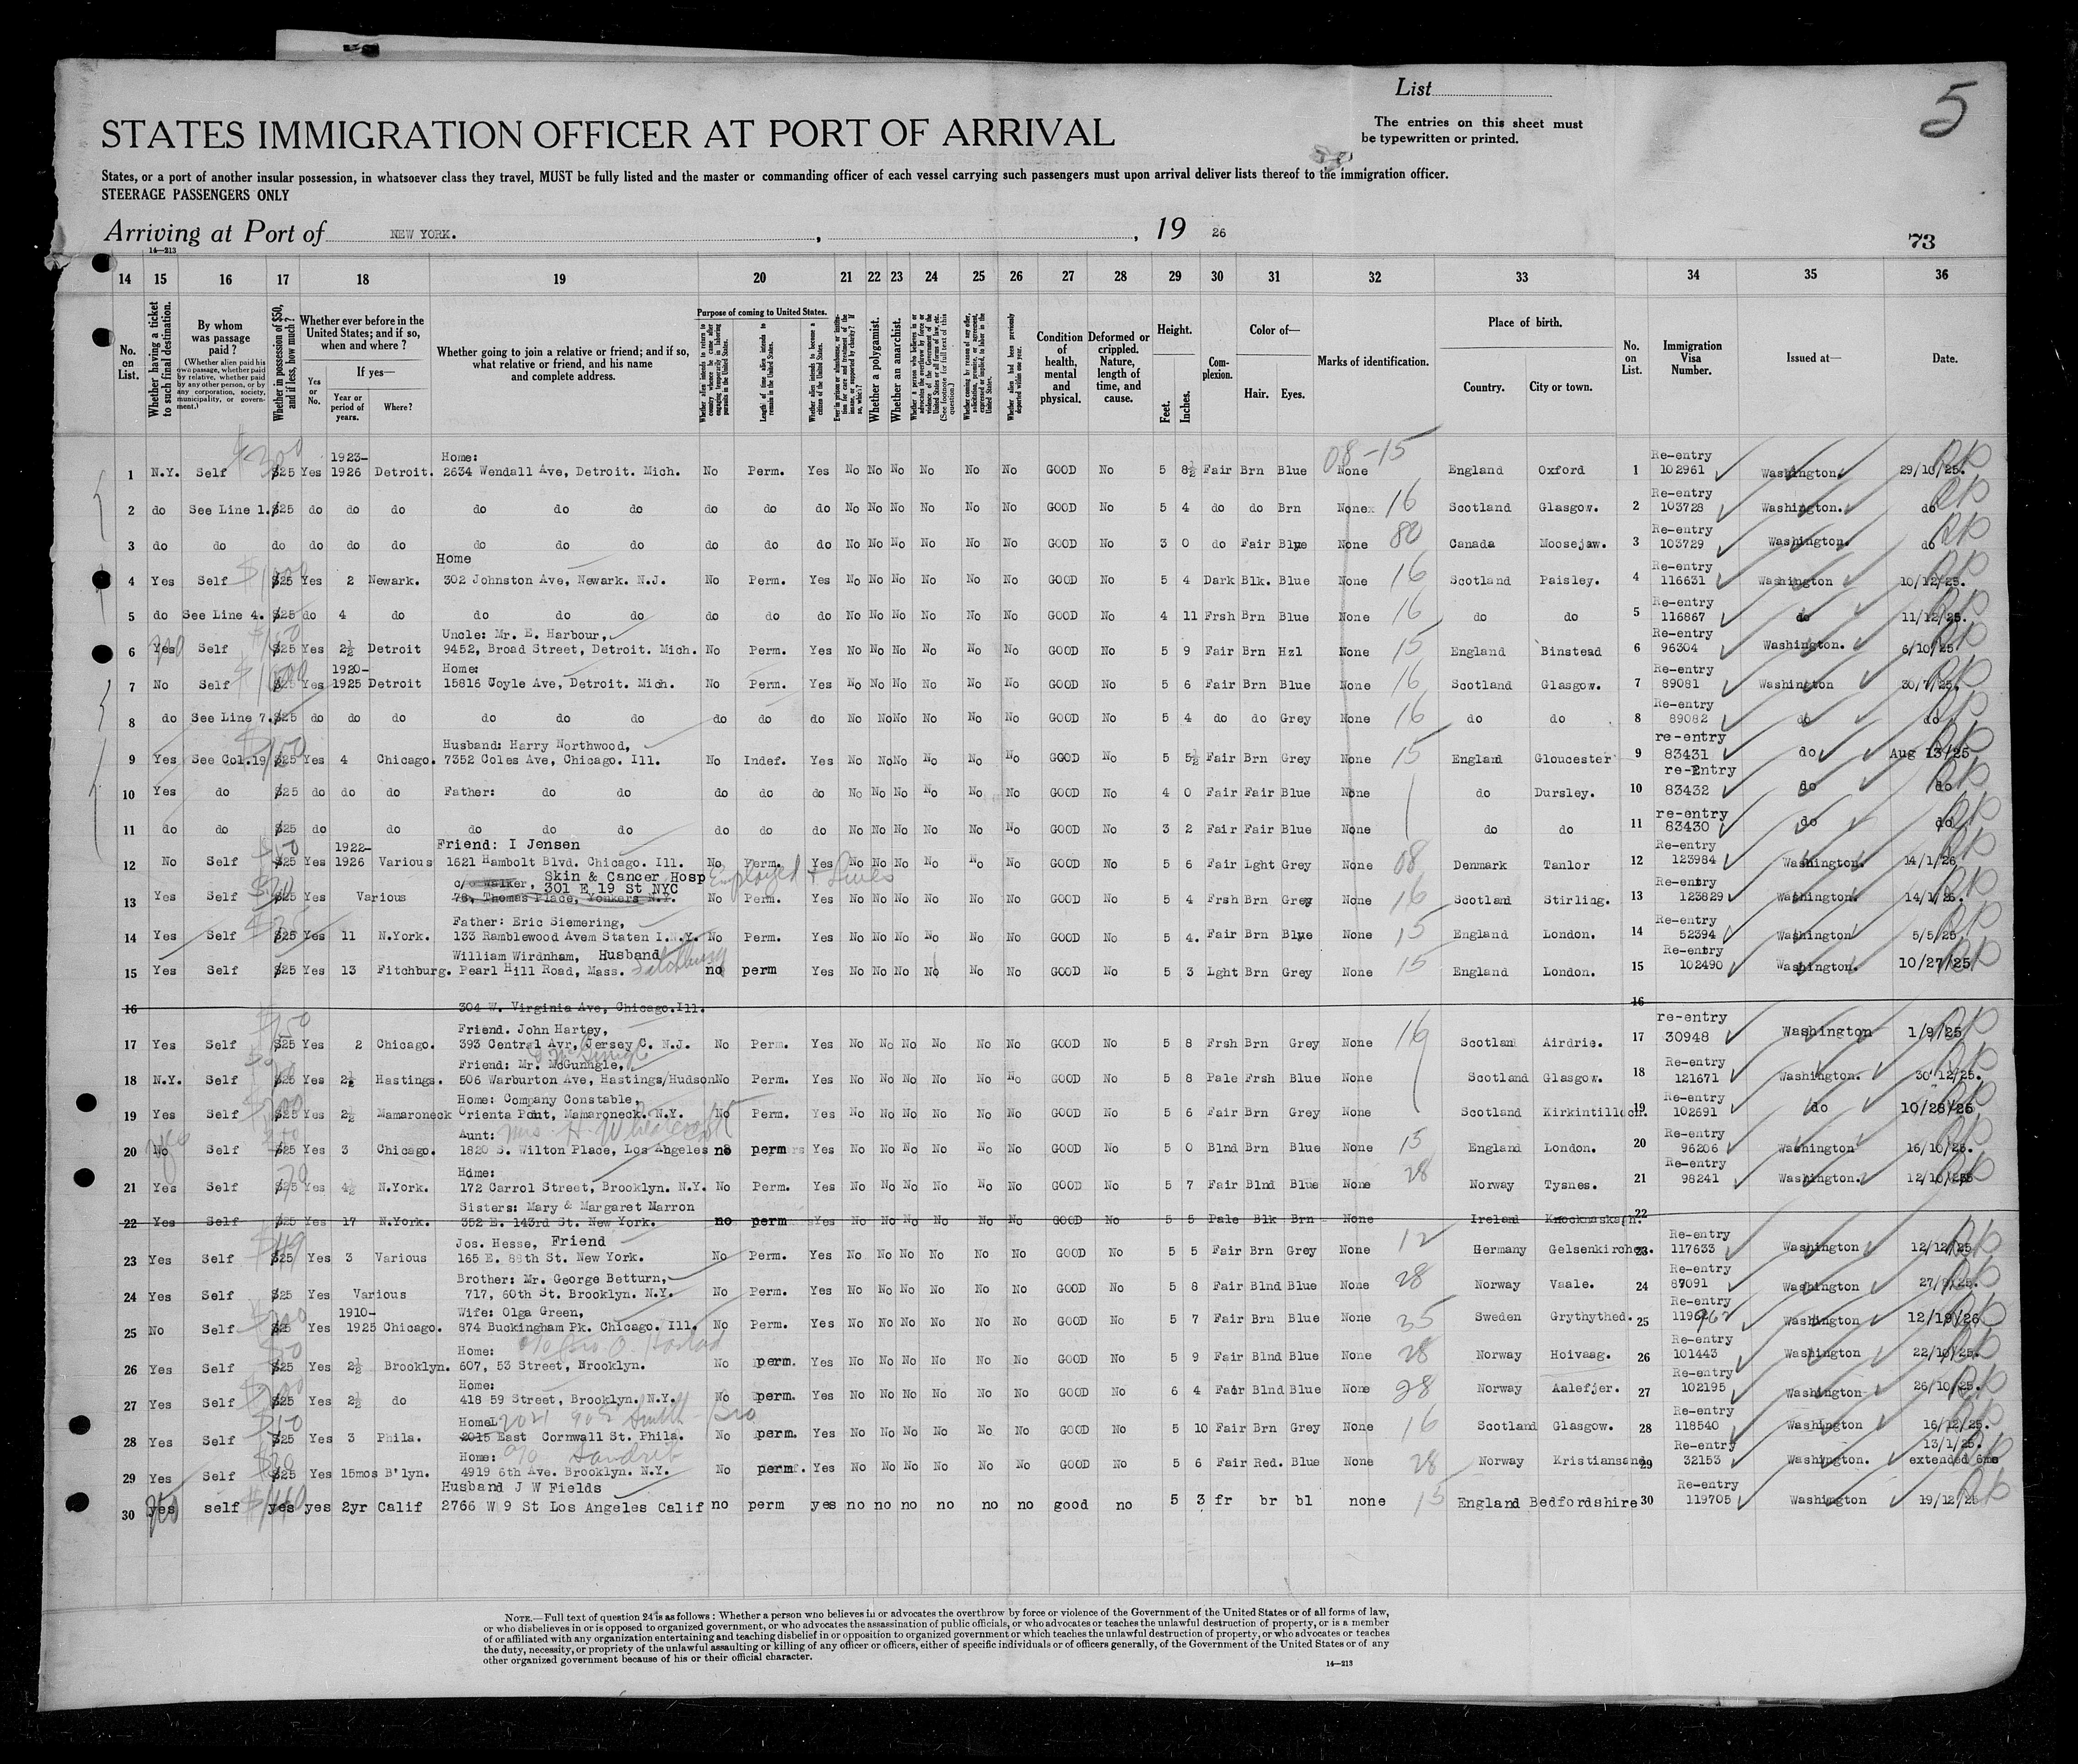 List
5
STATES IMMIGRATION OFFICER AT PORT OF ARRIVAL
The entries on this sheet must
be typewritten or printed.
States, or a port of another insular possession, in whatsoever class they travel, MUST be fully listed and the master or commanding officer of each vessel carrying such passengers must upon arrival deliver lists thereof to the immigration officer.
STEERAGE PASSENGERS ONLY
Arriving at Port of NEW YORK. , , 19 26
14—213
73
14 15 16 17 18 19 20 21 22 23 24 25 26 27 28 29 30 31 32 33 34 35 36
No. on List.
Whether having a ticket to such final destination.
By whom was passage paid?
(Whether alien paid his own passage, whether paid by relative, whether paid by any other person, or by any corporation, society, municipality, or government.)
Whether in possession of $50, and if less, how much?
Whether ever before in the United States; and if so, when and where?
Yes or No.
If yes—
Year or period of years.
Where?
Whether going to join a relative or friend; and if so, what relative or friend, and his name and complete address.
Purpose of coming to United States.
Length of time alien intends to remain in the United States.
Whether alien intends to become a citizen of the United States.
Whether a polygamist.
Whether an anarchist.
Condition of health, mental and physical.
Deformed or crippled. Nature, length of time, and cause.
Height.
Feet. Inches.
Complexion.
Color of—
Hair. Eyes.
Marks of identification.
Place of birth.
Country. City or town.
No. on List.
Immigration Visa Number.
Issued at—
Date.
1923- Home: 08-15 Re-entry
1 N.Y. Self $25 Yes 1926 Detroit. 2634 Wendall Ave, Detroit. Mich. No Perm. Yes No No No No No No GOOD No 5 8½ Fair Brn Blue None England Oxford 1 102961 Washington. 29/10/25.
Re-entry
2 do See Line 1. $25 do do do do do do do do do No No No No No No GOOD No 5 4 do do Brn None 16 Scotland Glasgow. 2 103728 Washington. do
Re-entry
3 do do do do do do do do do do do do No No No No No No GOOD No 3 0 do Fair Blue None 80 Canada Moosejaw. 3 103729 Washington. do
Home Re-entry
4 Yes Self $25 Yes 2 Newark. 302 Johnston Ave, Newark. N.J. No Perm. Yes No No No No No No GOOD No 5 4 Dark Blk. Blue None 16 Scotland Paisley. 4 116631 Washington 10/12/25.
Re-entry
5 do See Line 4. $25 do 4 do do do do do do do No No No No No No GOOD No 4 11 Frsh Brn Blue None 16 do do 5 116867 do 11/12/25.
Uncle: Mr. E. Harbour, Re-entry
6 Yes Self $25 Yes 2½ Detroit 9452, Broad Street, Detroit. Mich. No Perm. Yes No No No No No No GOOD No 5 9 Fair Brn Hzl None 15 England Binstead 6 96304 Washington. 6/10/25
1920- Home: Re-entry
7 No Self $25 Yes 1925 Detroit 15816 Coyle Ave, Detroit. Mich. No Perm. Yes No No No No No No GOOD No 5 6 Fair Brn Blue None 16 Scotland Glasgow. 7 89081 Washington 30/7/25.
Re-entry
8 do See Line 7. $25 do do do do do do do do do No No No No No No GOOD No 5 4 do do Grey None 16 do do 8 89082 do do
Husband: Harry Northwood, re-entry
9 Yes See Col.19 $25 Yes 4 Chicago. 7352 Coles Ave, Chicago. Ill. No Indef. Yes No No No No No No GOOD No 5 5½ Fair Brn Grey None 15 England Gloucester 9 83431 do Aug 13/25
re-Entry
10 Yes do $25 do do do Father: do do do do do No No No No No No GOOD No 4 0 Fair Fair Blue None do Dursley. 10 83432 do do
re-entry
11 do do $25 do do do do do do do do No No No No No No GOOD No 3 2 Fair Fair Blue None do do 11 83430 do do
1922- Friend: I Jensen Re-entry
12 No Self $25 Yes 1926 Various 1621 Hambolt Blvd. Chicago. Ill. No Perm. Yes No No No No No No GOOD No 5 6 Fair Lght Grey None 08 Denmark Tanlor 12 123984 Washington. 14/1/26
Skin & Cancer Hosp Employed + Lives
c/o Walker, 301 E 19 St NYC Re-entry
13 Yes Self $25 Yes Various 75, Thomas Place, Yonkers N.Y. No Perm. Yes No No No No No No GOOD No 5 4 Frsh Brn Grey None 16 Scotland Stirling. 13 123829 Washington. 14/1/26.
Father: Eric Siemering, Re-entry
14 Yes Self $25 Yes 11 N.York. 133 Ramblewood Avem Staten I. N.Y. No Perm. Yes No No No No No No GOOD No 5 4. Fair Brn Blue None 15 England London. 14 52394 Washington 5/5/25
William Wirdnham, Husband Fitchburg Re-entry
15 Yes Self $25 Yes 13 Fitchburg. Pearl Hill Road, Mass. no perm Yes No No No No No No GOOD No 5 3 Lght Brn Grey None 15 England London. 15 102490 Washington. 10/27/25
16 304 W. Virginia Ave, Chicago.Ill. 16
Friend. John Hartey, re-entry
17 Yes Self $25 Yes 2 Chicago. 393 Central Avr, Jersey C. N.J. No Perm. Yes No No No No No No GOOD No 5 8 Frsh Brn Grey None 16 Scotlan Airdrie. 17 30948 Washington 1/9/25
Friend: Mr. McGunngle, Re-entry
18 N.Y. Self $25 Yes 2½ Hastings. 506 Warburton Ave, Hastings/Hudson No Perm. Yes No No No No No No GOOD No 5 8 Pale Frsh Blue None Scotland Glasgow. 18 121671 Washington. 30/12/25.
Home: Company Constable, Re-entry
19 Yes Self $25 Yes 2½ Mamaroneck Orienta Pont, Mamaroneck. N.Y. No Perm. Yes No No No No No No GOOD No 5 6 Fair Brn Grey None Scotland Kirkintilloch. 19 102691 do 10/28/25
Aunt: Mrs. H. Re-entry
20 No Self $25 Yes 3 Chicago. 1820 S. Wilton Place, Los Angeles no perm Yes No No No No No No GOOD No 5 0 Blnd Brn Blue None 15 England London. 20 96206 Washington 16/10/25.
Home: Re-entry
21 Yes Self $25 Yes 4½ N.York. 172 Carrol Street, Brooklyn. N.Y. No Perm. Yes No No No No No No GOOD No 5 7 Fair Blnd Blue None 28 Norway Tysnes. 21 98241 Washington. 12/10/25
Sisters: Mary & Margaret Marron
22 Yes Self $25 Yes 17 N.York. 352 E. 143rd St. New York. no perm Yes No No No No No No GOOD No 5 5 Pale Blk Brn None Ireland 22
Jos. Hesse, Friend Re-entry
23 Yes Self $25 Yes 3 Various 165 E. 88th St. New York. No Perm. Yes No No No No No No GOOD No 5 5 Fair Brn Grey None 12 Germany Gelsenkirchen. 23 117633 Washington 12/12/25
Brother: Mr. George Betturn, Re-entry
24 Yes Self $25 Yes Various 717, 60th St. Brooklyn. N.Y. No Perm. Yes No No No No No No GOOD No 5 8 Fair Blnd Blue None 28 Norway Vaale. 24 87091 Washington 27/8/25.
1910- Wife: Olga Green, Re-entry
25 No Self $25 Yes 1925 Chicago. 874 Buckingham Pk. Chicago. Ill. No Perm. Yes No No No No No No GOOD No 5 7 Fair Brn Blue None 35 Sweden Grythythed. 25 Washington 12/19/26
Home: Re-entry
26 Yes Self $25 Yes 2½ Brooklyn. 607, 53 Street, Brooklyn. No perm. Yes No No No No No No GOOD No 5 9 Fair Blnd Blue None 28 Norway Hoivaag. 26 101443 Washington 22/10/25.
Home: Re-entry
27 Yes Self $25 Yes 2½ do 418 59 Street, Brooklyn. N.Y. No perm. Yes No No No No No No GOOD No 6 4 Fair Blnd Blue None 28 Norway Aalefjer. 27 102195 Washington 26/10/25.
Home 2021 Smith Bro Re-entry
28 Yes Self $25 Yes 3 Phila. 2015 East Cornwall St. Phila. No perm. Yes No No No No No No GOOD No 5 10 Fair Brn Grey None 16 Scotland Glasgow. 28 118540 Washington 16/12/25.
Home: c/o Re-entry 13/1/25.
29 Yes Self $25 Yes 15mos B'lyn. 4919 6th Ave. Brooklyn. N.Y. No perm. Yes No No No No No No GOOD No 5 6 Fair Red. Blue None 28 Norway Kristiansand 29 32153 Washington. extended 6ms
Husband J W Fields Re-entry
30 yes self yes yes 2yr Calif 2766 W 9 St Los Angeles Calif no perm yes no no no no no no good no 5 3 fr br bl none 15 England Bedfordshire 30 119705 Washington 19/12/25
NOTE.—Full text of question 24 is as follows: Whether a person who believes in or advocates the overthrow by force or violence of the Government of the United States or of all forms of law,
or who disbelieves in or is opposed to organized government, or who advocates the assassination of public officials, or who advocates or teaches the unlawful destruction of property, or is a member
of or affiliated with any organization entertaining and teaching disbelief in or opposition to organized government or which teaches the unlawful destruction of property, or who advocates or teaches
the duty, necessity, or propriety of the unlawful assaulting or killing of any officer or officers, either of specific individuals or of officers generally, of the Government of the United States or of any
other organized government because of his or their official character.
14—213